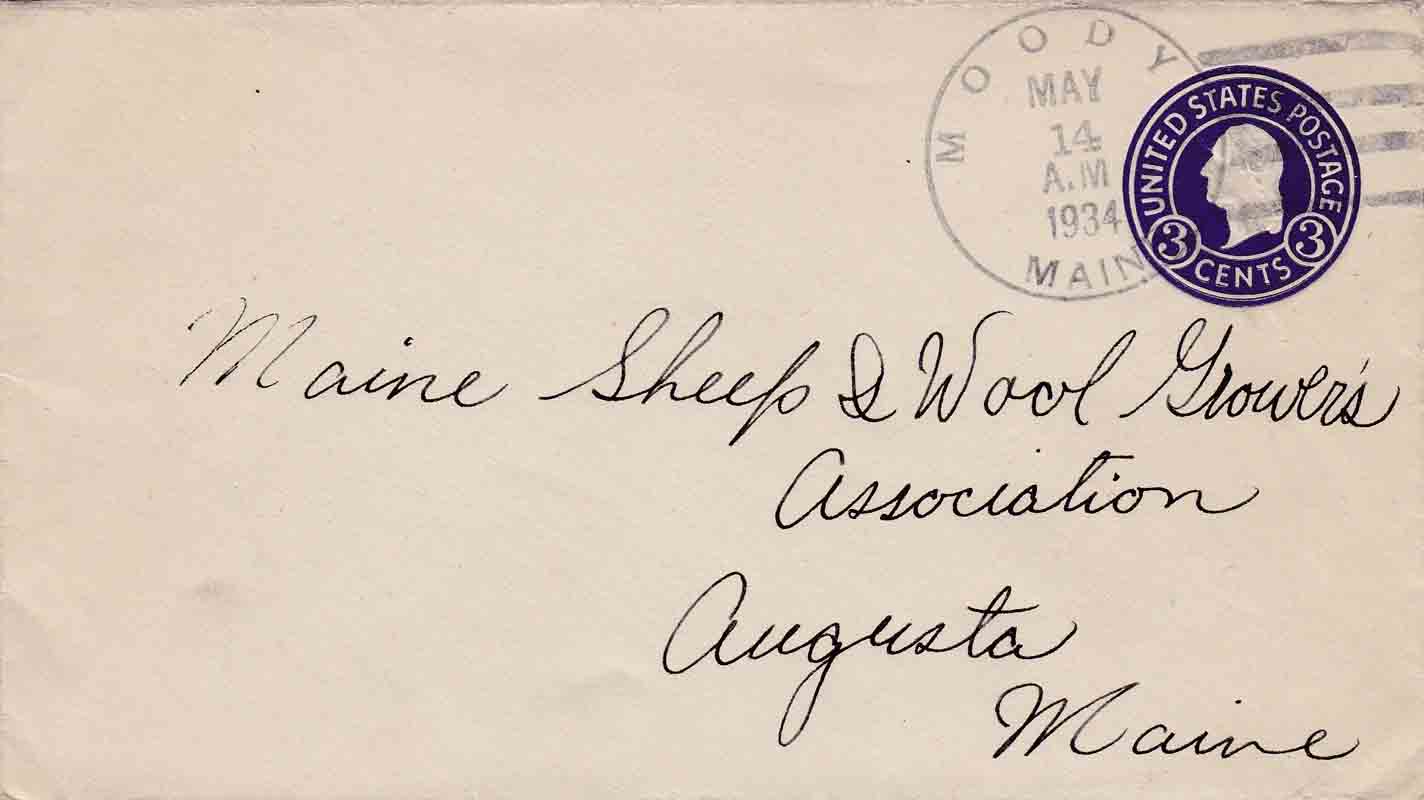 MOODY
MAY
14
A.M
1934
MAINE
UNITED STATES POSTAGE
3 CENTS 3
Maine Sheep & Wool Grower's
Association
Augusta
Maine